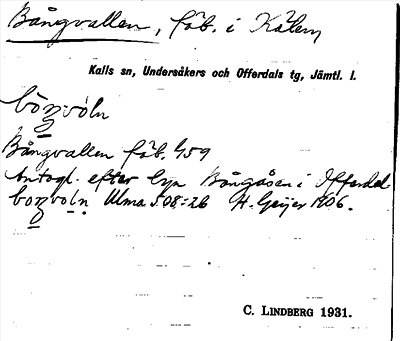 Bångvallen, fäb. i Kälen
Kalls sn, Undersåkers och Offerdals tg, Jämtl. l.
båŋvoln
Bångvallen fäb. G59
Antagl. efter byn Bångåsen i Offerdal
båŋvoln Ulma 508:26 H. Geijer 1906.
C. LINDBERG 1931.